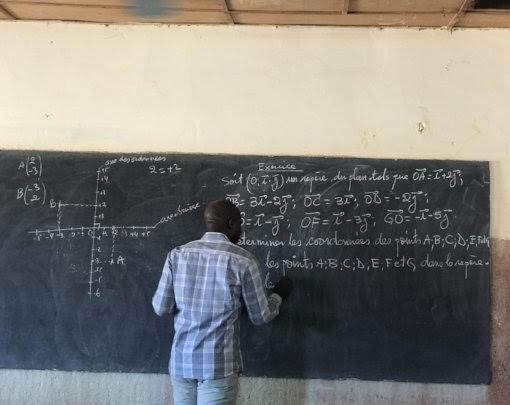 A(2 -3)
B(-3 2)
axe des ordonnées
2 = +2
B
A
Exercice
Soit (O, i, j) un repère du plan tels que OA = i + 2j;
= 3i - 2j; OC = 3i; OD = -2j;
= i - j; OF = i - 3j; GO = -i - 5j
eterminer les coordonnées des points A; B; C; D; E; F et G
les points A; B; C; D, E; F et G dans le repère.